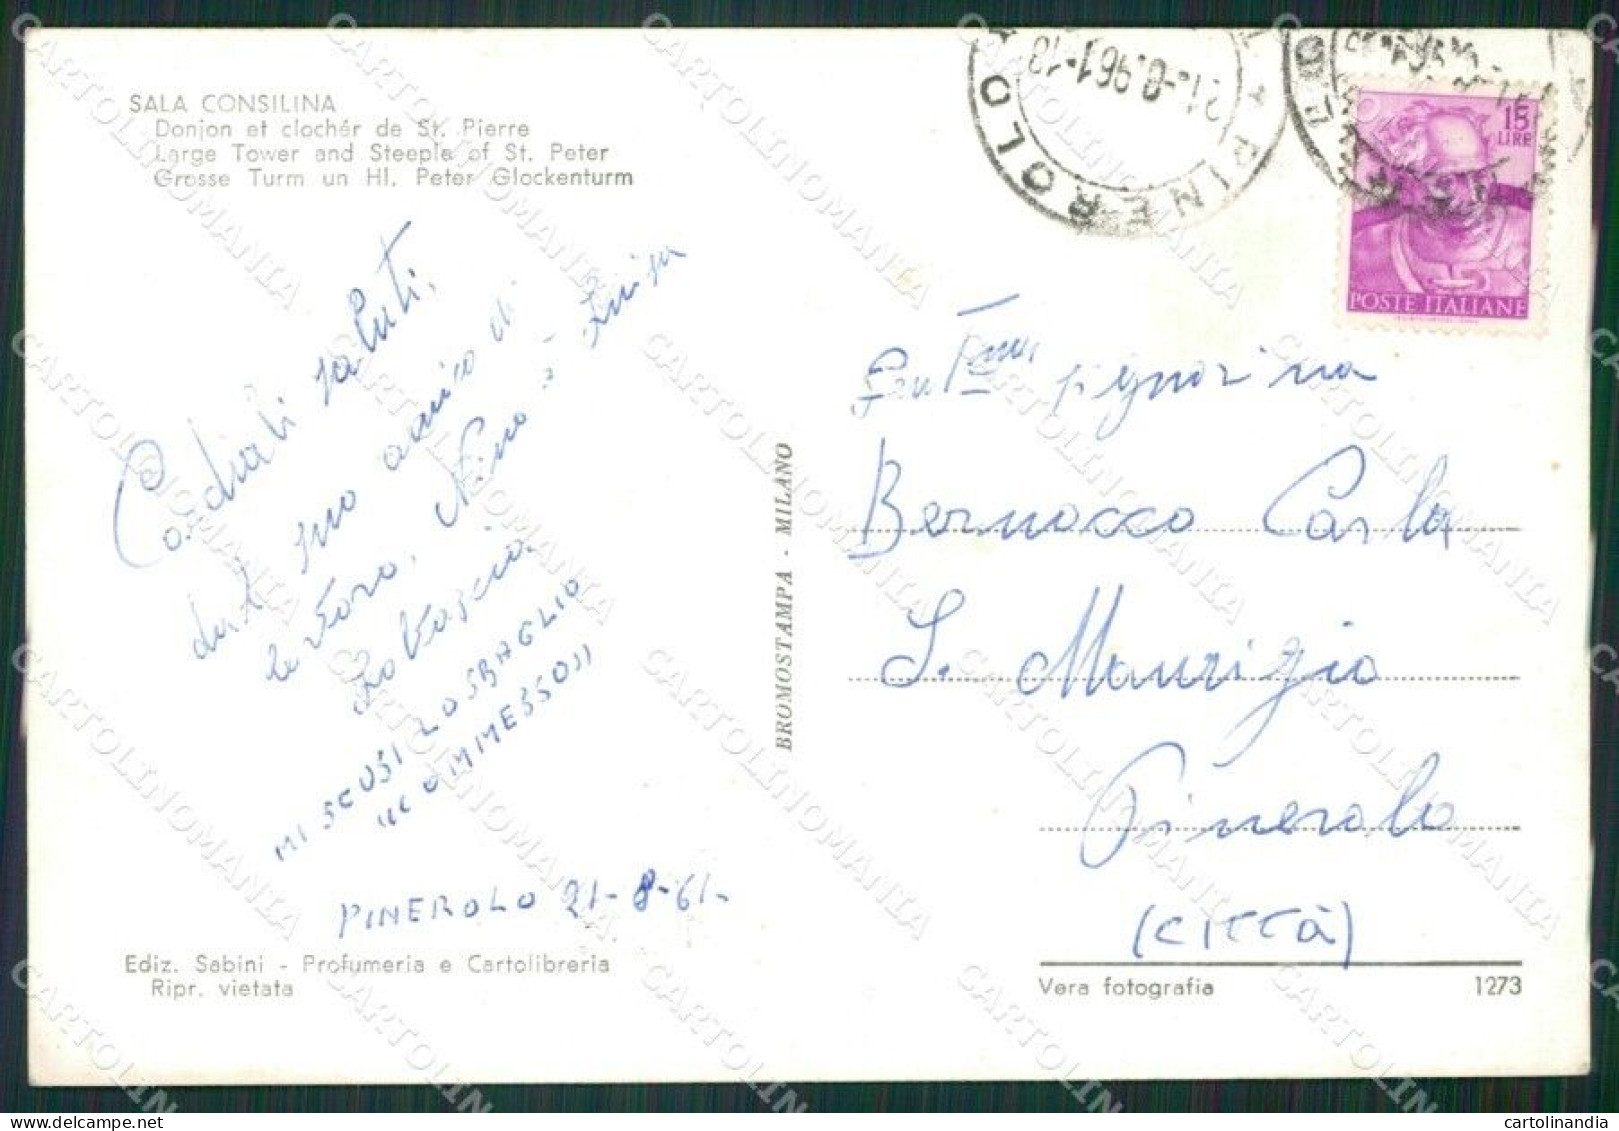 SALA CONSILINA
Donjon et clochér de St. Pierre
Large Tower and Steeple of St. Peter
Grosse Turm un Hl. Peter Glockenturm
Cordiali saluti,
dal suo amico di
lavoro, Nino e Luisa
MI SCUSI LO SBAGLIO
"COMMESSO"
PINEROLO 21-8-61-
Ediz. Sabini - Profumeria e Cartolibreria
Ripr. vietata
BROMOSTAMPA - MILANO
PINEROLO
21.-8.961-18
15
LIRE
POSTE ITALIANE
Gent.ma signorina
Bernocco Carla
S. Maurizio
Pinerolo
(CITTÀ)
Vera fotografia
1273
CARTOLINOMANIA
cartolinandia